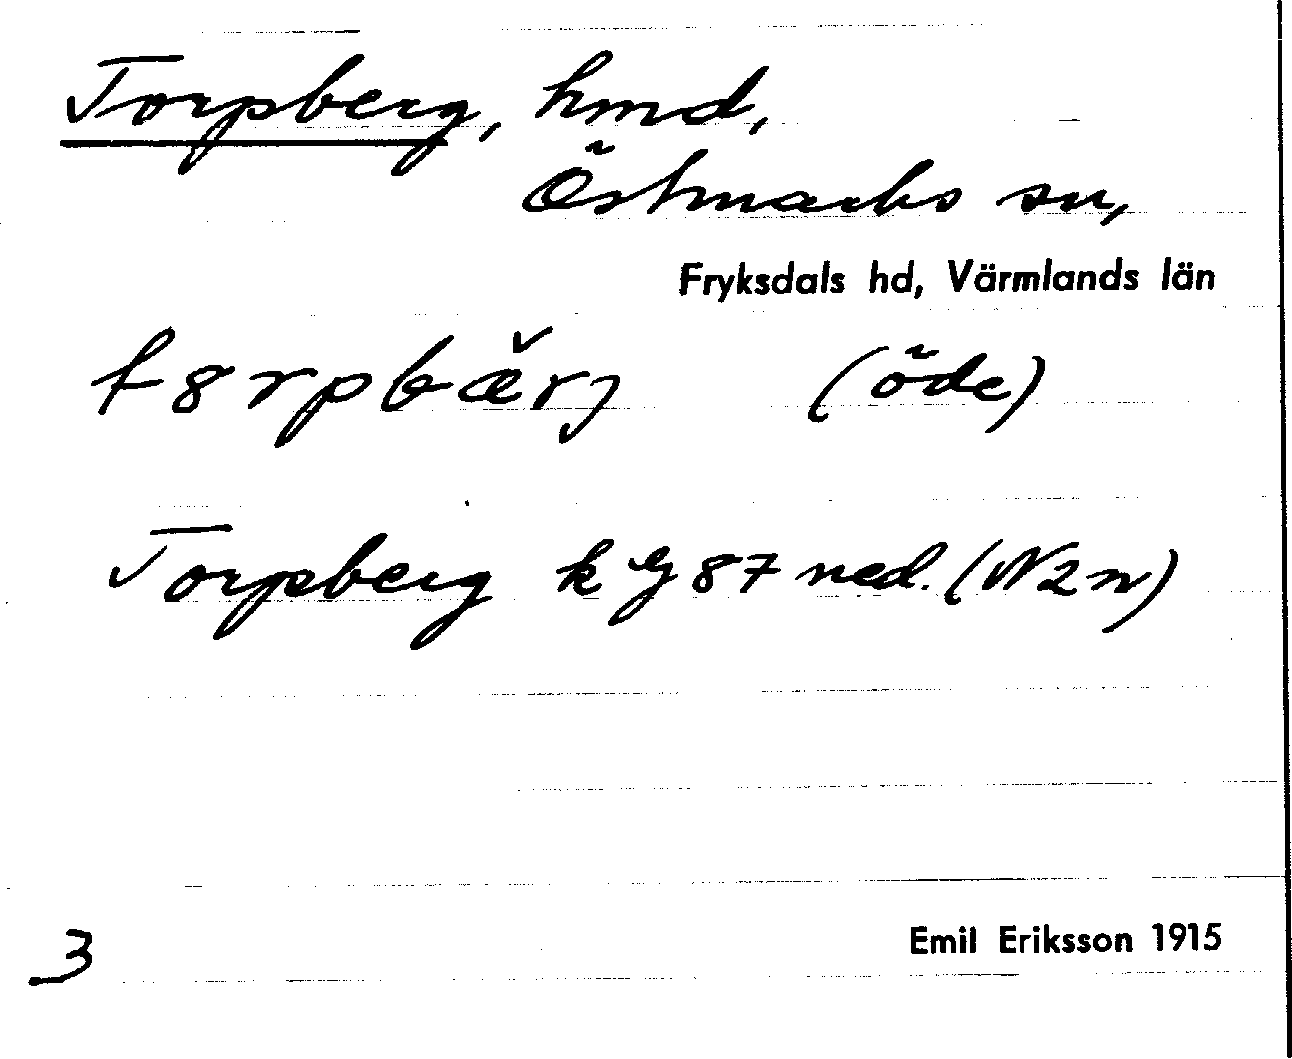 Torpberg, hmd,
Östmarks sn,
Fryksdals hd, Värmlands län
t8rpbæ̌rj (öde)
Torpberg k 87 ned. (N2n)
3
Emil Eriksson 1915